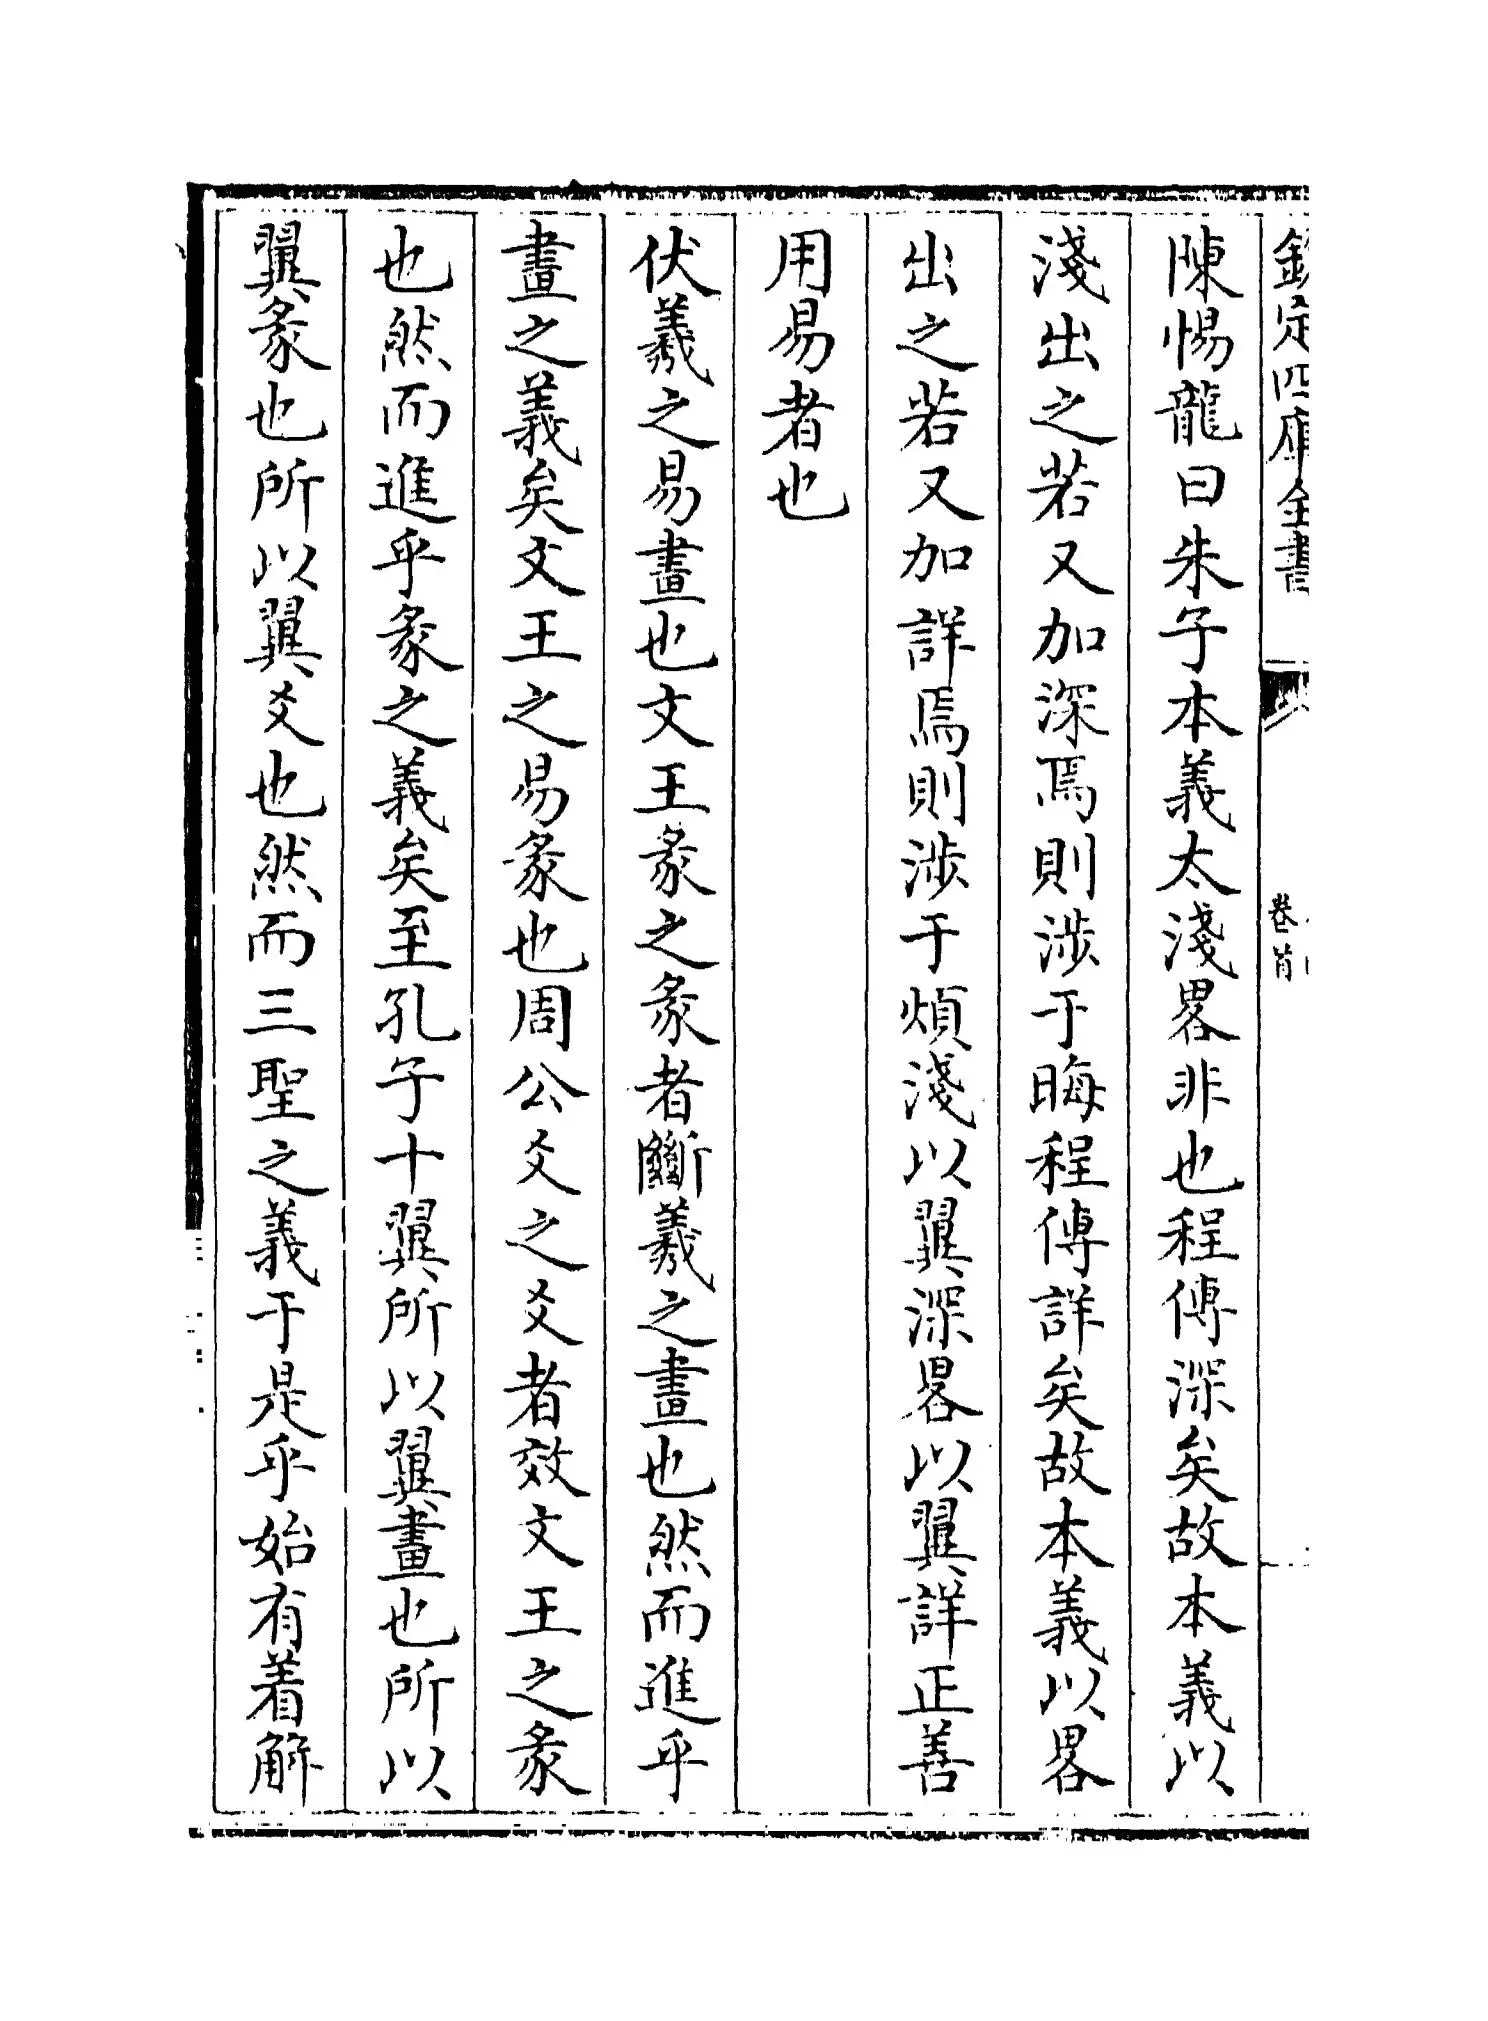 欽定四庫全書
卷首
陳惕龍曰朱子本義太淺畧非也程傳深矣故本義以
淺出之若又加深焉則涉于晦程傳詳矣故本義以畧
出之若又加詳焉則涉于煩淺以翼深畧以翼詳正善
用易者也
伏羲之易畫也文王彖之彖者斷羲之畫也然而進乎
畫之義矣文王之易彖也周公爻之爻者效文王之彖
也然而進乎彖之義矣至孔子十翼所以翼畫也所以
翼彖也所以翼爻也然而三聖之義于是乎始有着解